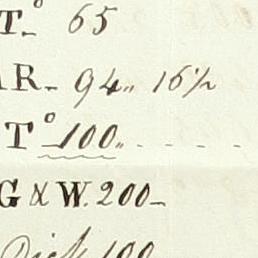 T. 65
R. 94.. 16½
T° 100..
G & W. 200
Dick 100